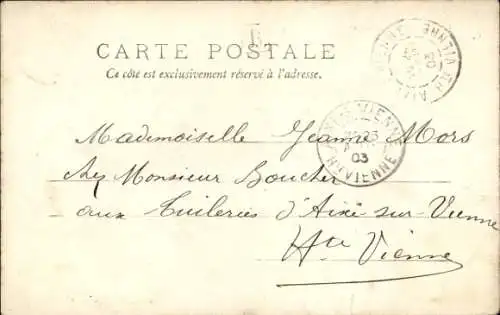 CARTE POSTALE
Ce côté est exclusivement réservé à l'adresse.
Mademoiselle Jeanne Mors
chez Monsieur Boucher
aux Tuileries d'Aixe-sur-Vienne
Hte Vienne
03
HTE VIENNE